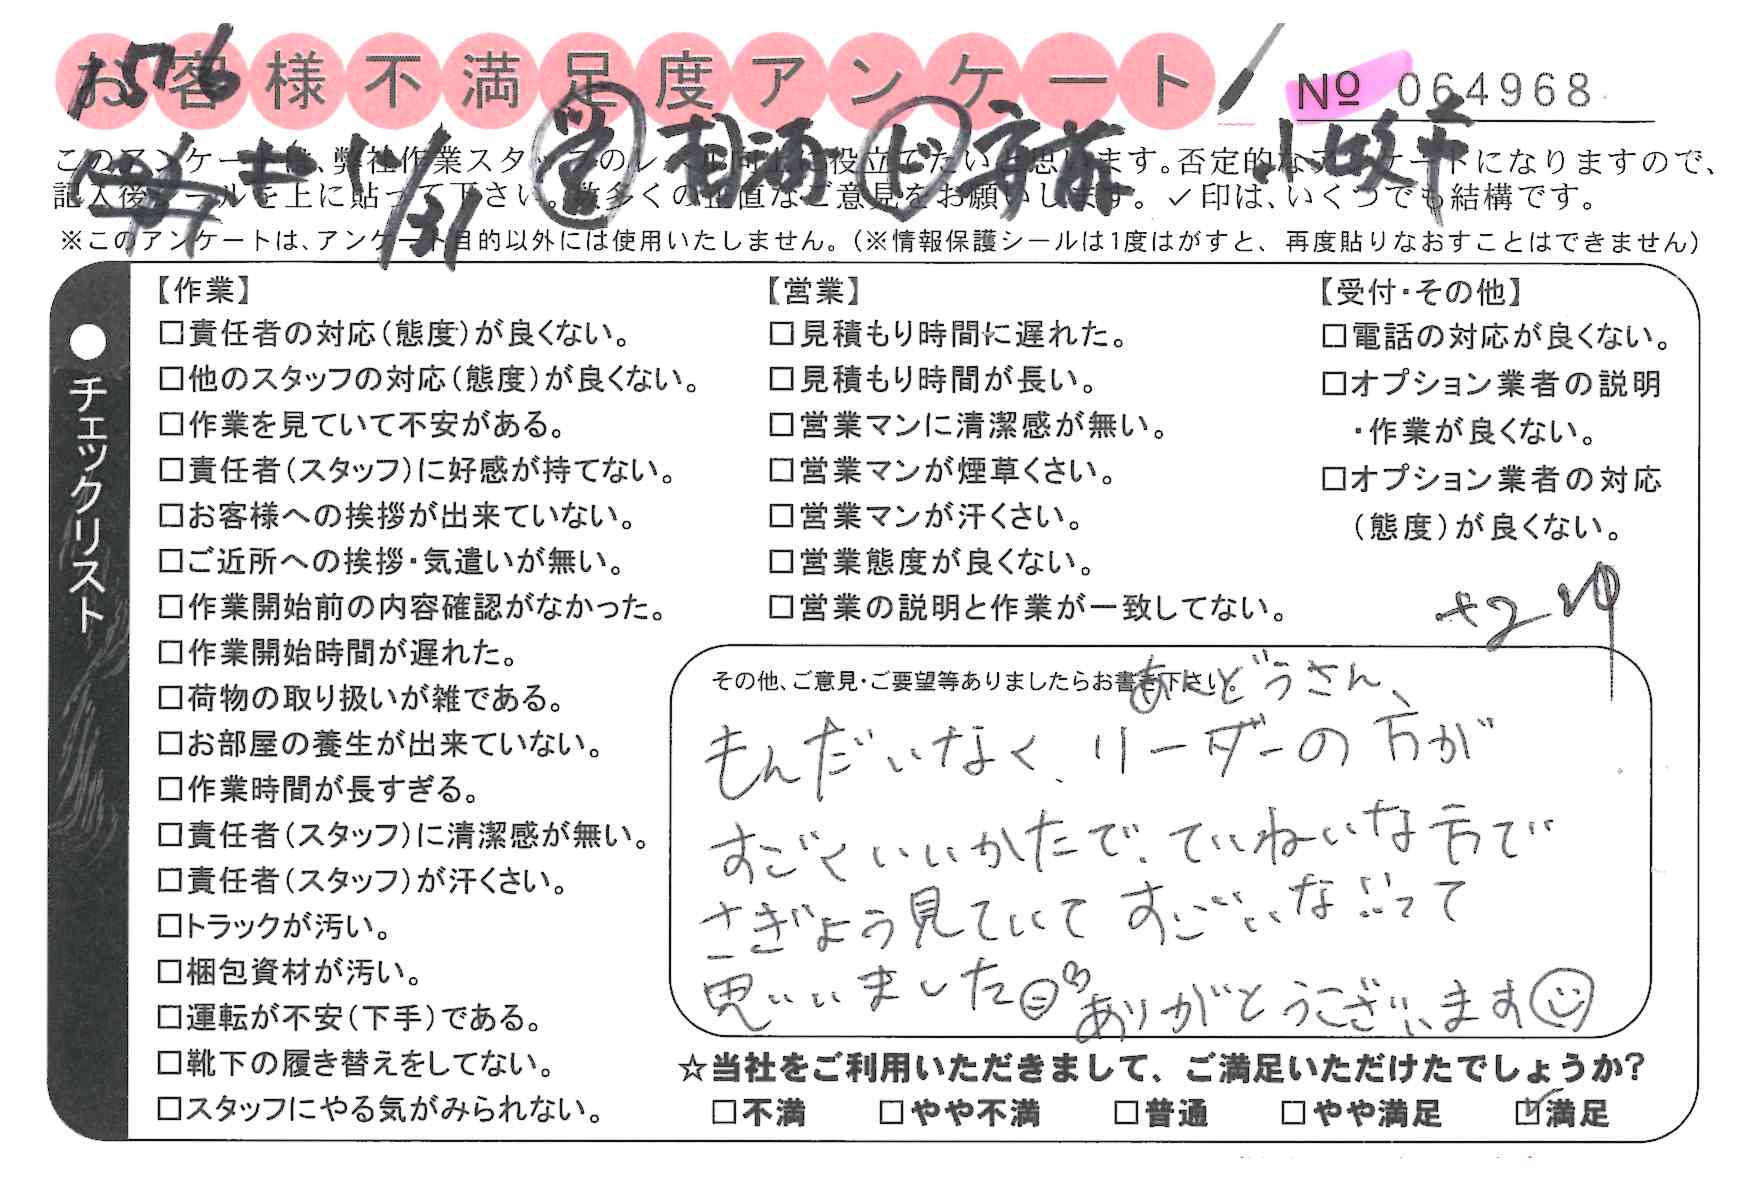 お客様不満足度アンケート
№ 064968
1576
1/31 営 相酒 ド 宗前 小峻平
このアンケートは、弊社作業スタッフのレベル向上に役立てたいと思います。否定的なアンケートになりますので、
記入後シールを上に貼って下さい。数多くの正直なご意見をお願いします。✓印は、いくつでも結構です。
※このアンケートは、アンケート目的以外には使用いたしません。(※情報保護シールは1度はがすと、再度貼りなおすことはできません)
●チェックリスト
【作業】
□責任者の対応(態度)が良くない。
□他のスタッフの対応(態度)が良くない。
□作業を見ていて不安がある。
□責任者(スタッフ)に好感が持てない。
□お客様への挨拶が出来ていない。
□ご近所への挨拶・気遣いが無い。
□作業開始前の内容確認がなかった。
□作業開始時間が遅れた。
□荷物の取り扱いが雑である。
□お部屋の養生が出来ていない。
□作業時間が長すぎる。
□責任者(スタッフ)に清潔感が無い。
□責任者(スタッフ)が汗くさい。
□トラックが汚い。
□梱包資材が汚い。
□運転が不安(下手)である。
□靴下の履き替えをしてない。
□スタッフにやる気がみられない。
【営業】
□見積もり時間に遅れた。
□見積もり時間が長い。
□営業マンに清潔感が無い。
□営業マンが煙草くさい。
□営業マンが汗くさい。
□営業態度が良くない。
□営業の説明と作業が一致してない。
【受付・その他】
□電話の対応が良くない。
□オプション業者の説明
・作業が良くない。
□オプション業者の対応
(態度)が良くない。
その他、ご意見・ご要望等ありましたらお書き下さい。
あんどうさん、
もんだいなく、リーダーの方が
すごくいいかたで、ていねいな方で
さぎょう見ていて すごいなぁって
思いいました
ありがとうございます
☆当社をご利用いただきまして、ご満足いただけたでしょうか?
□不満 □やや不満 □普通 □やや満足 ☑満足